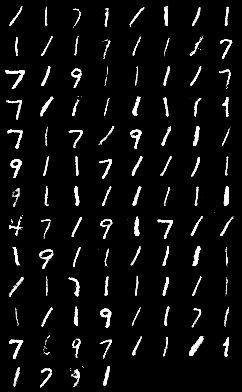 1 1 7 1 1 1 1 1
1 1 1 7 1 1 1 7
7 1 9 1 1 1 1 7
7 1 1 1 1 1 1 1
7 1 7 1 9 1 1 1
9 1 1 7 1 1 1 1
9 1 1 1 1 1 1 1
4 7 1 9 1 7 1 1
1 9 1 1 1 1 1 1
1 1 7 1 1 1 1 1
1 1 1 9 1 1 7 1
7 9 7 1 1 1 1
1 7 9 1